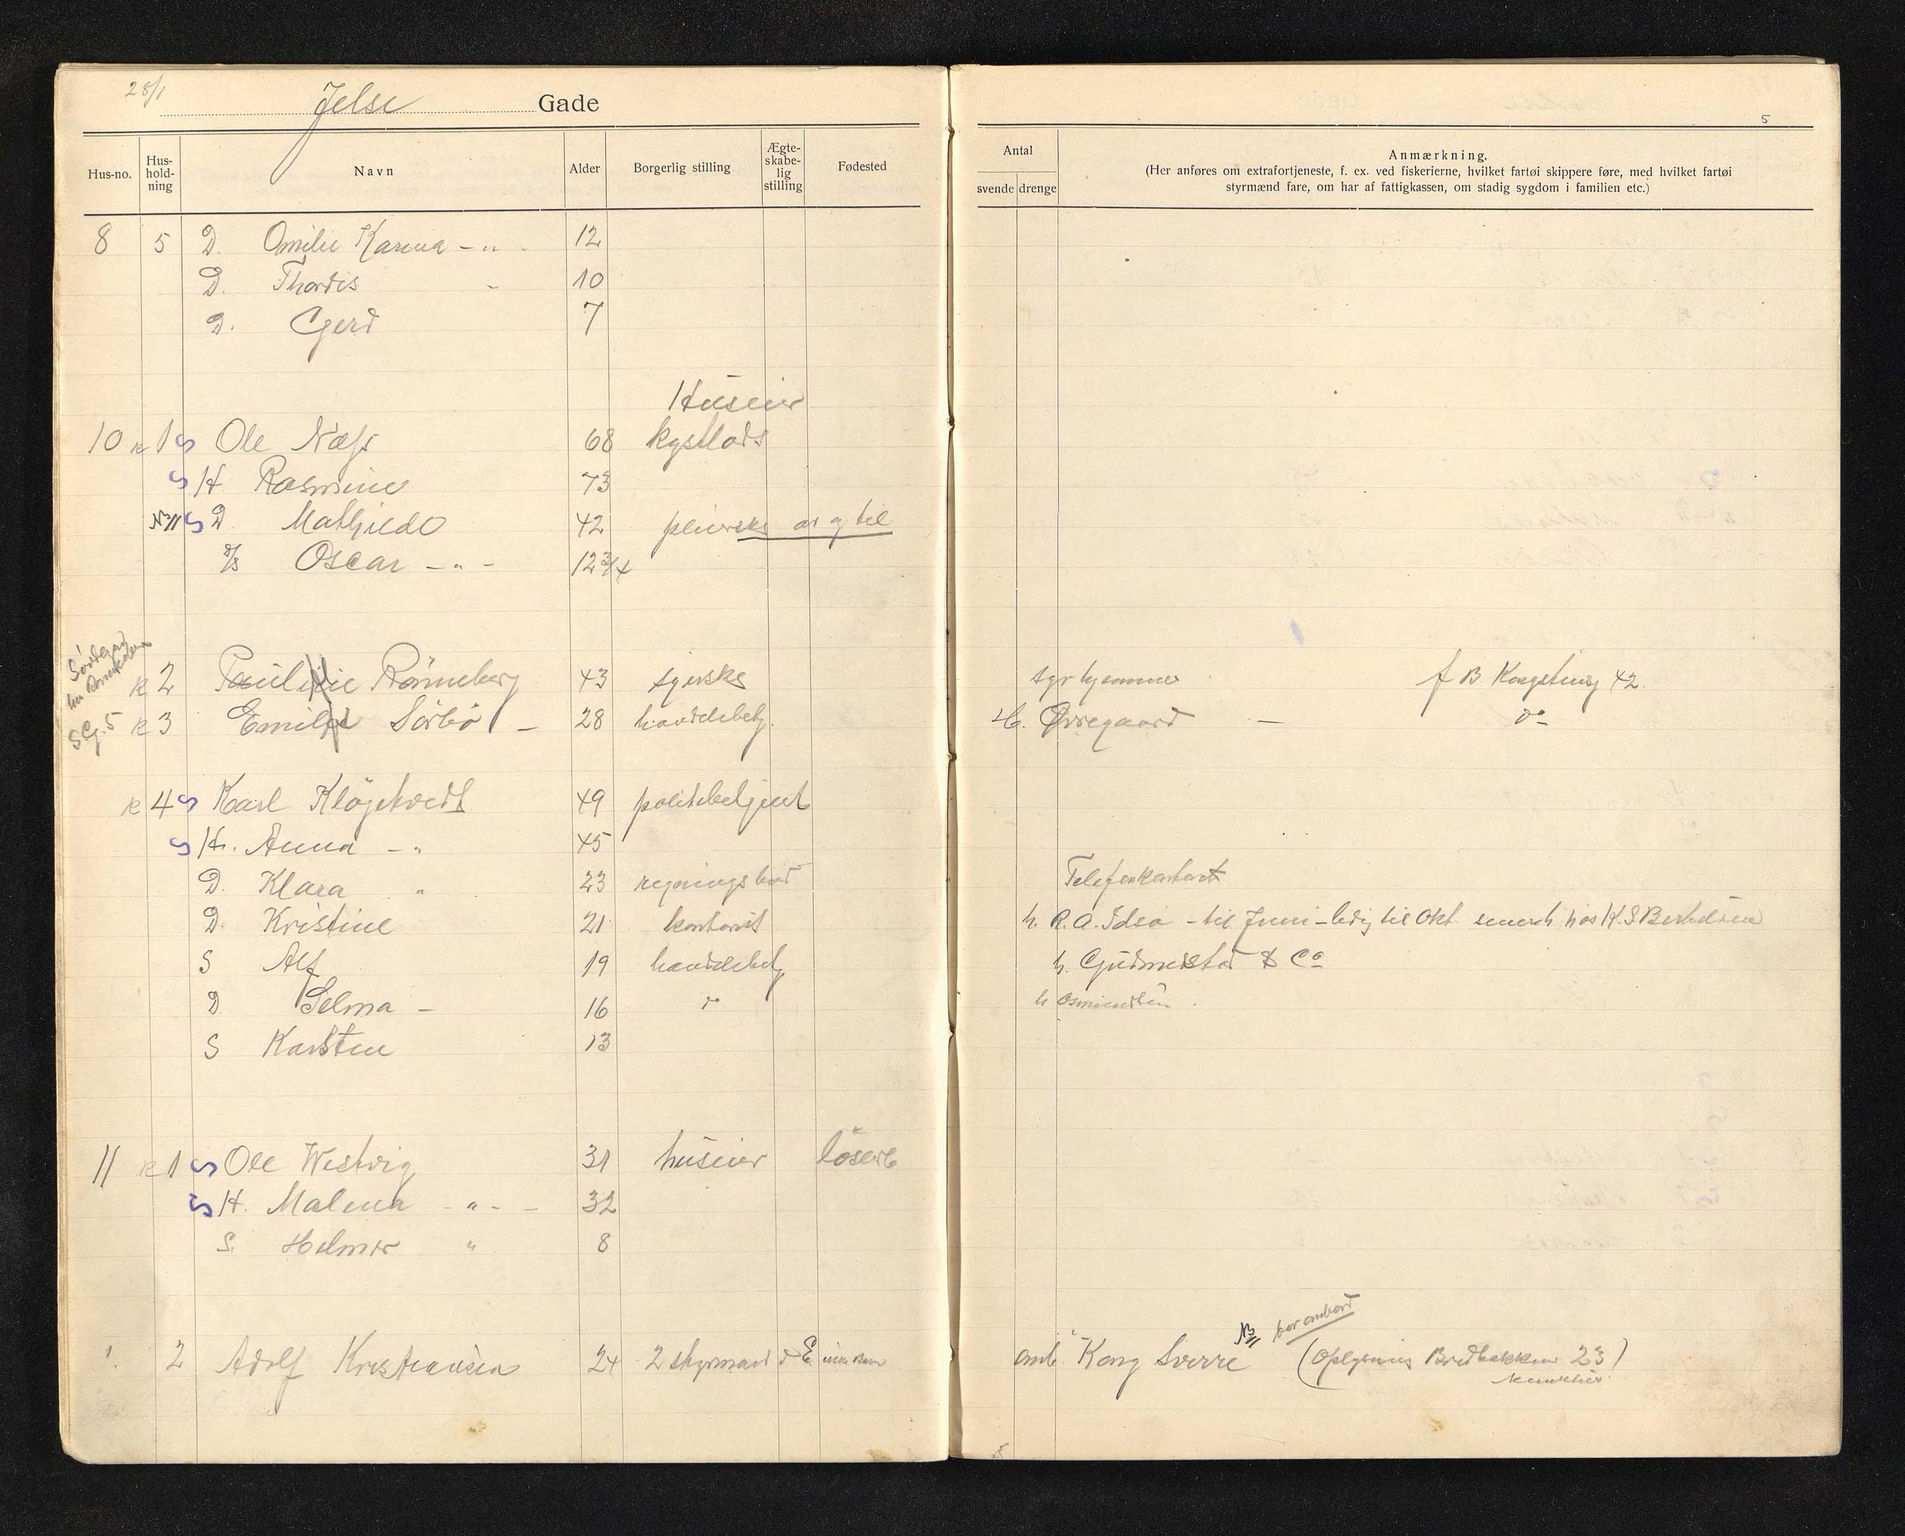 28/1
Jelse Gade
Hus-no. Hus-hold-ning Navn Alder Borgerlig stilling Ægte-skabe-lig stilling Fødested
8 5 D. Omilie Karina - " - 12
D. Thordis " 10
D. Gerd 7
Huseier
10 k 1 S Ole Næss 68 kystlods
S H Rasmine 73
S D Mathilde 42 pleierske av og til
D/S Oscar - " - 12 3/4
k 2 Paulie Rönneberg 43 syerske
SG. 5 k 3 Emil Sörbö - 28 handelsbetj.
k 4 S Karl Klöjtvedt 49 politibetjent
S H. Anna - " 45
D. Klara " 23 regningsbud
D. Kristine 21 kontorist
S Alf 19 handelsbetj
D Selma - 16 do
S Karsten 13
11 k 1 S Ole Westvig 31 huseier
S H. Malena - " - - 32
S. Helmer " 8
2 Adolf Kristiansen 24 2 styrmand E
5
Antal
svende drenge
Anmærkning.
(Her anføres om extrafortjeneste, f. ex. ved fiskerierne, hvilket fartøi skippere føre, med hvilket fartøi
styrmænd fare, om har af fattigkassen, om stadig sygdom i familien etc.)
syr hjemme f B. Kongsteng 42.
H. Övregaard - do
Telefonkontoret
h. R. A. Idsö - til Juni - ledig til Okt. senere hos K. S. Bertelsen
h. Gudmestad & Co
h Osmundsen.
bor ombord
omb "Kong Sverre NB (Oplysning Bredbakken 23)